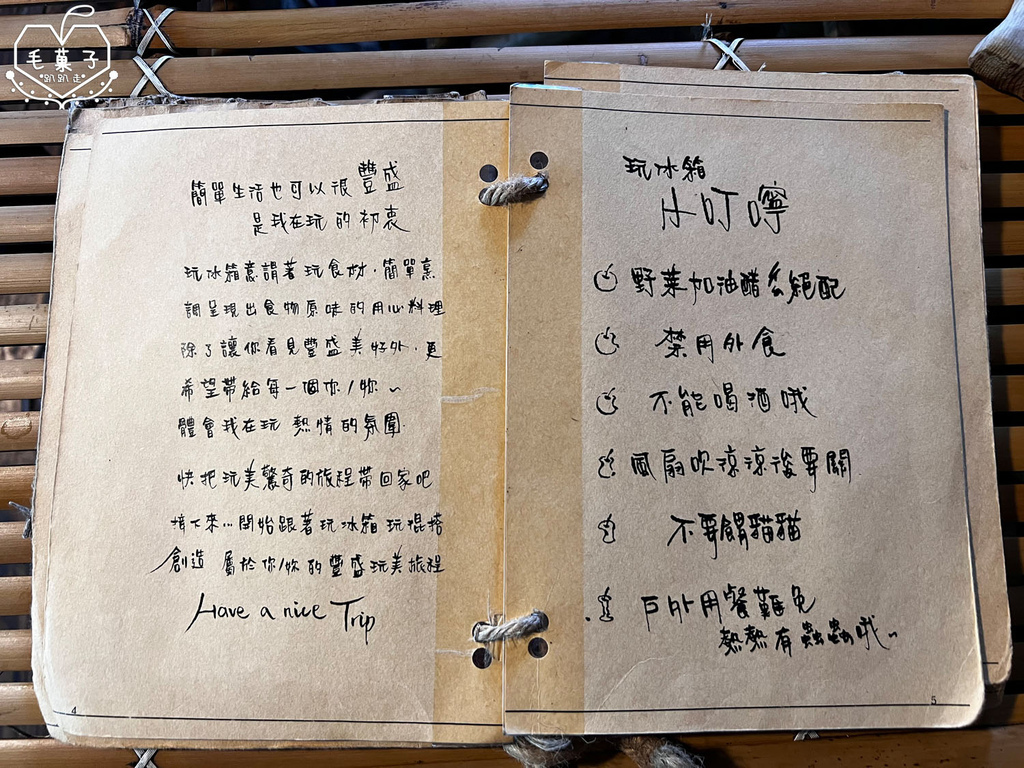 毛菓子
趴趴走
簡單生活也可以很豐盛
是我在玩的初衷
玩冰箱意謂著玩食材，簡單烹
調呈現出食物原味的用心料理
除了讓你看見豐盛美好外，更
希望帶給每一個你/妳~
體會我在玩 熱情的氛圍.
快把玩美驚奇的旅程帶回家吧
接下來...開始跟著玩冰箱玩混搭
創造 屬於你/妳的豐盛玩美旅程
Have a nice Trip
4
玩冰箱
小叮嚀
野菜加油醋多絕配
禁用外食
不能喝酒哦
風扇吹涼涼後要關
不要餵貓貓
戶外用餐難免
熱熱有蟲蟲哦~
5